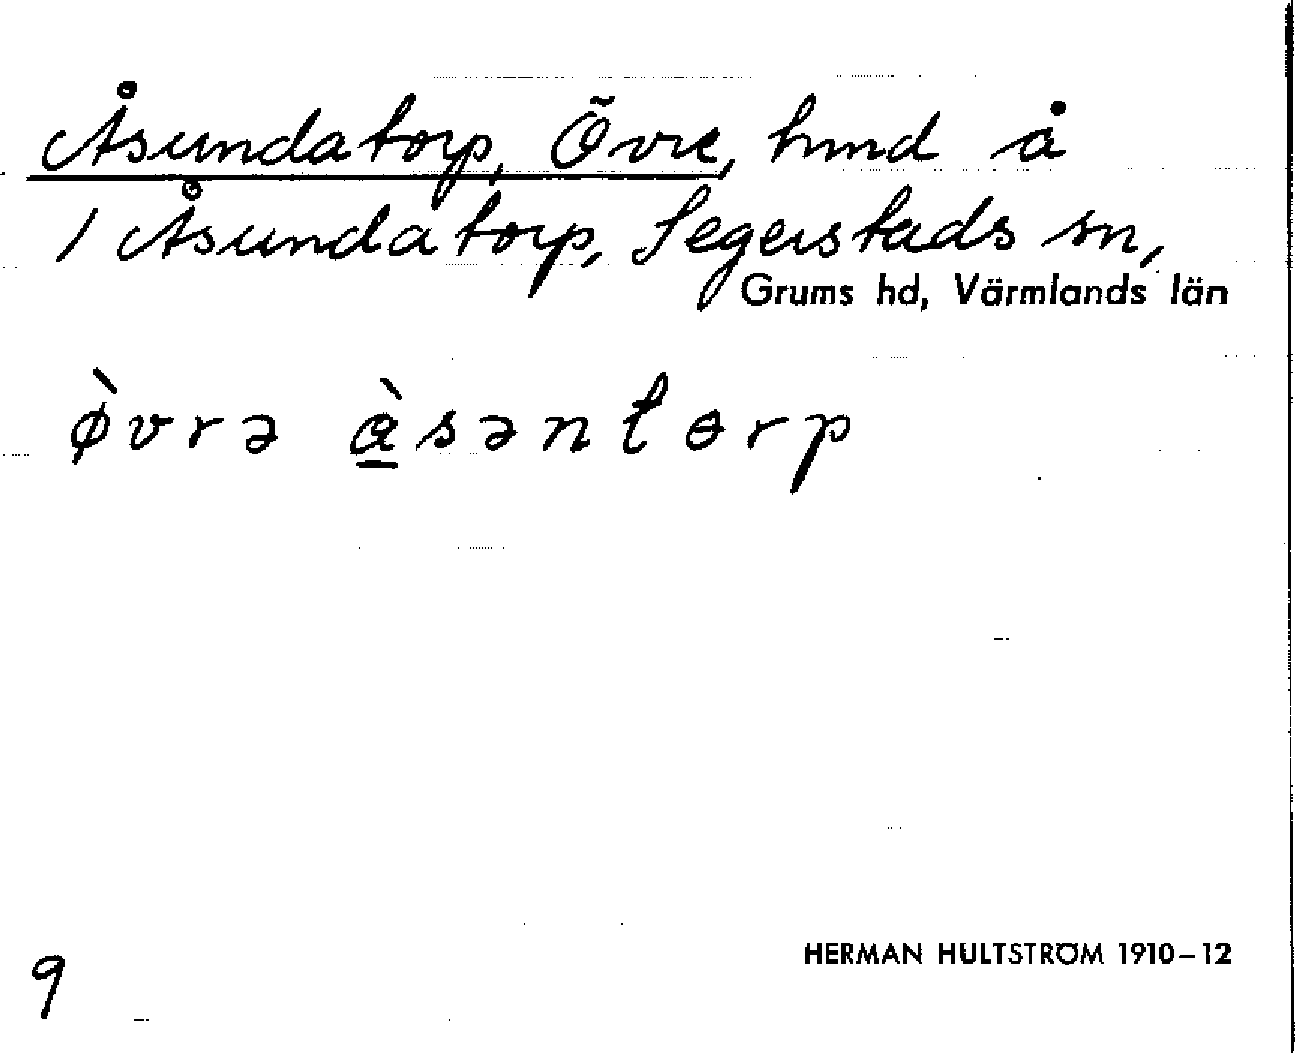 Åsundatorp, Övre, hmd å
1 Åsundatorp, Segerstads sn,
Grums hd, Värmlands län
ø̀vrə å̀səntɵrp
HERMAN HULTSTRÖM 1910–12
9